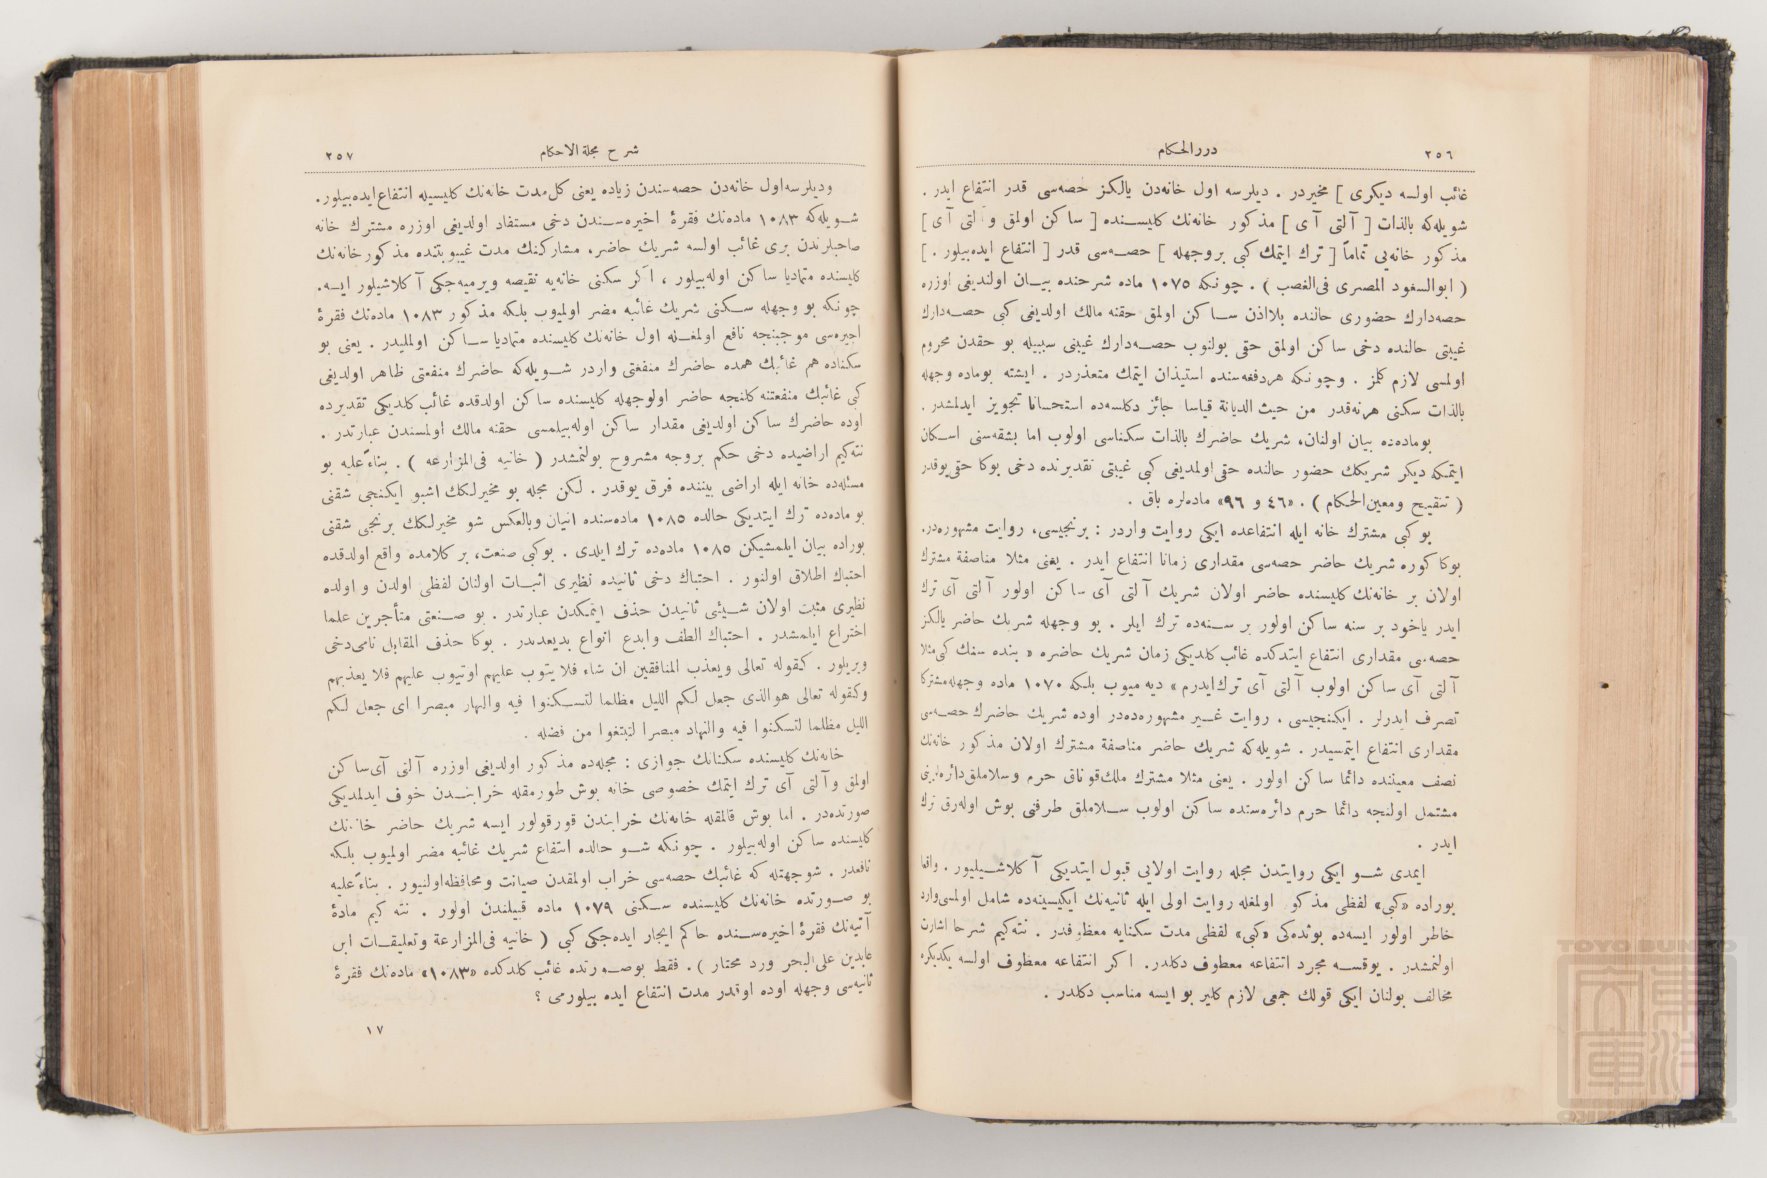 ٢٥٦
دررالحكام
غائب اولسه ديكرى ] مخيردر . ديلرسه اول خانه‌دن يالكز حصه‌سى قدر انتفاع ايدر .
شويله‌كه بالذات [ آلتى آى ] مذكور خانه‌نك كليسنده [ ساكن اولمق و آلتى آى ]
مذكور خانه‌يى تماماً [ ترك ايتمك كبى بروجهله ] حصه‌سى قدر [ انتفاع ايده‌بيلور . ]
( ابوالسعود المصرى فى‌الغصب ) . چونكه ١٠٧٥ ماده شرحنده بيان اولنديغى اوزره
حصه‌دارك حضورى حالنده بلااذن ساكن اولمق حقنه مالك اولديغى كبى حصه‌دارك
غيبتى حالنده دخى ساكن اولمق حقى بولنوب حصه‌دارك غيبتى سببيله بو حقدن محروم
اولمسى لازم كلمز . وچونكه هردفعه‌سنده استيذان ايتمك متعذردر . ايشته بوماده وجهله
بالذات سكنى هرنه‌قدر من حيث الديانة قياسا جائز دكلسه‌ده استحسانا تجويز ايدلمشدر .
بوماده‌ده بيان اولنان، شريك حاضرك بالذات سكناسى اولوب اما بشقه‌سنى اسكان
ايتمكه ديكر شريكك حضور حالنده حقى‌اولمديغى كبى غيبتى تقديرنده دخى بوكا حقى‌يوقدر
( تنقيح ومعين‌الحكام ) . «٤٦ و ٩٦» ماده‌لره باق .
بو كبى مشترك خانه ايله انتفاعده ايكى روايت واردر : برنجيسى، روايت مشهوره‌در.
بوكا كوره شريك حاضر حصه‌سى مقدارى زمانا انتفاع ايدر . يعنى مثلا مناصفة مشترك
اولان بر خانه‌نك كليسنده حاضر اولان شريك آلتى آى ساكن اولور آلتى آى ترك
ايدر ياخود بر سنه ساكن اولور بر سنه‌ده ترك ايلر . بو وجهله شريك حاضر يالكز
حصه‌سى مقدارى انتفاع ايتدكده غائب كلديكى زمان شريك حاضره « بنده سنك كبى‌مثلا
آلتى آى ساكن اولوب آلتى آى ترك‌ايدرم » ديه‌ميوب بلكه ١٠٧٠ ماده وجهله‌مشتركا
تصرف ايدرلر . ايكنجيسى . روايت غير مشهوره‌ده‌در اوده شريك حاضرك حصه‌سى
مقدارى انتفاع ايتمسيدر . شويله‌كه شريك حاضر مناصفة مشترك اولان مذكور خانه‌نك
نصف معيننده دائما ساكن اولور . يعنى مثلا مشترك ملك‌قوناق حرم وسلاملق‌دائره‌لرينى
مشتمل اولنجه دائما حرم دائره‌سنده ساكن اولوب سلاملق طرفنى بوش اوله‌رق ترك
ايدر .
ايمدى شو ايكى روايتدن مجله روايت اولايى قبول ايتديكى آكلاشيليور . واقعا
بوراده «كبى» لفظى مذكور اولمغله روايت اولى ايله ثانيه‌نك ايكيسينه‌ده شامل اولمسى‌وارد
خاطر اولور ايسه‌ده بوئده‌كى «كبى» لفظى مدت سكنايه معطوفدر . نته‌كيم شرحا اشارت
اولنمشدر . يوقسه مجرد انتفاعه معطوف دكلدر. اكر انتفاعه معطوف اولسه يكديكره
مخالف بولنان ايكى قولك جمعى لازم كلير بو ايسه مناسب دكلدر .
شرح مجلة الاحكام
٢٥٧
وديلرسه‌اول خانه‌دن حصه‌سندن زياده يعنى كل‌مدت خانه‌نك كليسيله انتفاع‌ايده‌بيلور.
شويله‌كه ١٠٨٣ ماده‌نك فقرۀ اخيره‌سندن دخى مستفاد اولديغى اوزره مشترك خانه
صاحبلرندن برى غائب اولسه شريك حاضر، مشاركنك مدت غيبوبتنده مذكورخانه‌نك
كليسنده متماديا ساكن اوله‌بيلور ، اكر سكنى خانه‌يه نقيصه ويرميه‌جكى آكلاشيلور ايسه.
چونكه بو وجهله سكنى شريك غائبه مضر اولميوب بلكه مذكور ١٠٨٣ ماده‌نك فقرۀ
اخيره‌سى موجبنجه نافع اولمغله اول خانه‌نك كليسنده متماديا ساكن اولمليدر . يعنى بو
سكناده هم غائبك همده حاضرك منفعتى واردر شويله‌كه حاضرك منفعتى ظاهر اولديغى
كبى غائبك منفعتنه كلنجه حاضر اولوجهله كليسنده ساكن اولدقده غائب كلديكى تقديرده
اوده حاضرك ساكن اولديغى مقدار ساكن اوله‌بيلمسى حقنه مالك اولمسندن عبارتدر .
نته‌كيم اراضيده دخى حكم بروجه مشروح بولنمشدر ( خانيه فى‌المزارعه ) . بناءً عليه بو
مسئله‌ده خانه ايله اراضى بيننده فرق يوقدر . لكن مجله بو مخيرلكك اشبو ايكنجى شقنى
بوماده‌ده ترك ايتديكى حالده ١٠٨٥ ماده‌سنده اتيان وبالعكس شو مخيرلكك برنجى شقنى
بوراده بيان ايلمشيكن ١٠٨٥ ماده‌ده ترك ايلدى . بوكبى صنعت، بر كلامده واقع اولدقده
احتباك اطلاق اولنور . احتباك دخى ثانيده نظيرى اثبات اولنان لفظى اولدن و اولده
نظيرى مثبت اولان شيئى ثانيدن حذف ايتمكدن عبارتدر . بو صنعتى متأخرين علما
اختراع ايلمشدر . احتباك الطف وابدع انواع بديعدندر . بوكا حذف المقابل نامى‌دخى
ويريلور . كقوله تعالى ويعذب المنافقين ان شاء فلا يتوب عليهم اويتوب عليهم فلا يعذبهم
وكقوله تعالى هوالذى جعل لكم الليل مظلما لتسكنوا فيه والنهار مبصرا اى جعل لكم
الليل مظلما لتسكنوا فيه والنهاد مبصرا لتبتغوا من فضله .
خانه‌نك كليسنده سكنانك جوازى : مجله‌ده مذكور اولديغى اوزره آلتى آى‌ساكن
اولمق وآلتى آى ترك ايتمك خصوصى خانه بوش طورمقله خرابندن خوف ايدلمديكى
صورتده‌در . اما بوش قالمقله خانه‌نك خرابندن قورقولور ايسه شريك حاضر خانه‌نك
كليسنده ساكن اوله‌بيلور . چونكه شو حالده انتفاع شريك غائبه مضر اولميوب بلكه
نافعدر . شوجهتله كه غائبك حصه‌سى خراب اولمقدن صيانت ومحافظه‌اولنيور . بناءً عليه
بو صورتده خانه‌نك كليسنده سكنى ١٠٧٩ ماده قبيلندن اولور . نته كيم مادۀ
آتيه‌نك فقرۀ اخيره‌سنده حاكم ايجار ايده‌جكى كبى ( خانيه فى‌المزارعة وتعليقات ابن
عابدين على‌البحر ورد محتار ). فقط بوصورتده غائب كلدكده «١٠٨٣» ماده‌نك فقرۀ
ثانيه‌سى وجهله اوده اوقدر مدت انتفاع ايده بيلورمى ؟
١٧
TOYO BUNKO